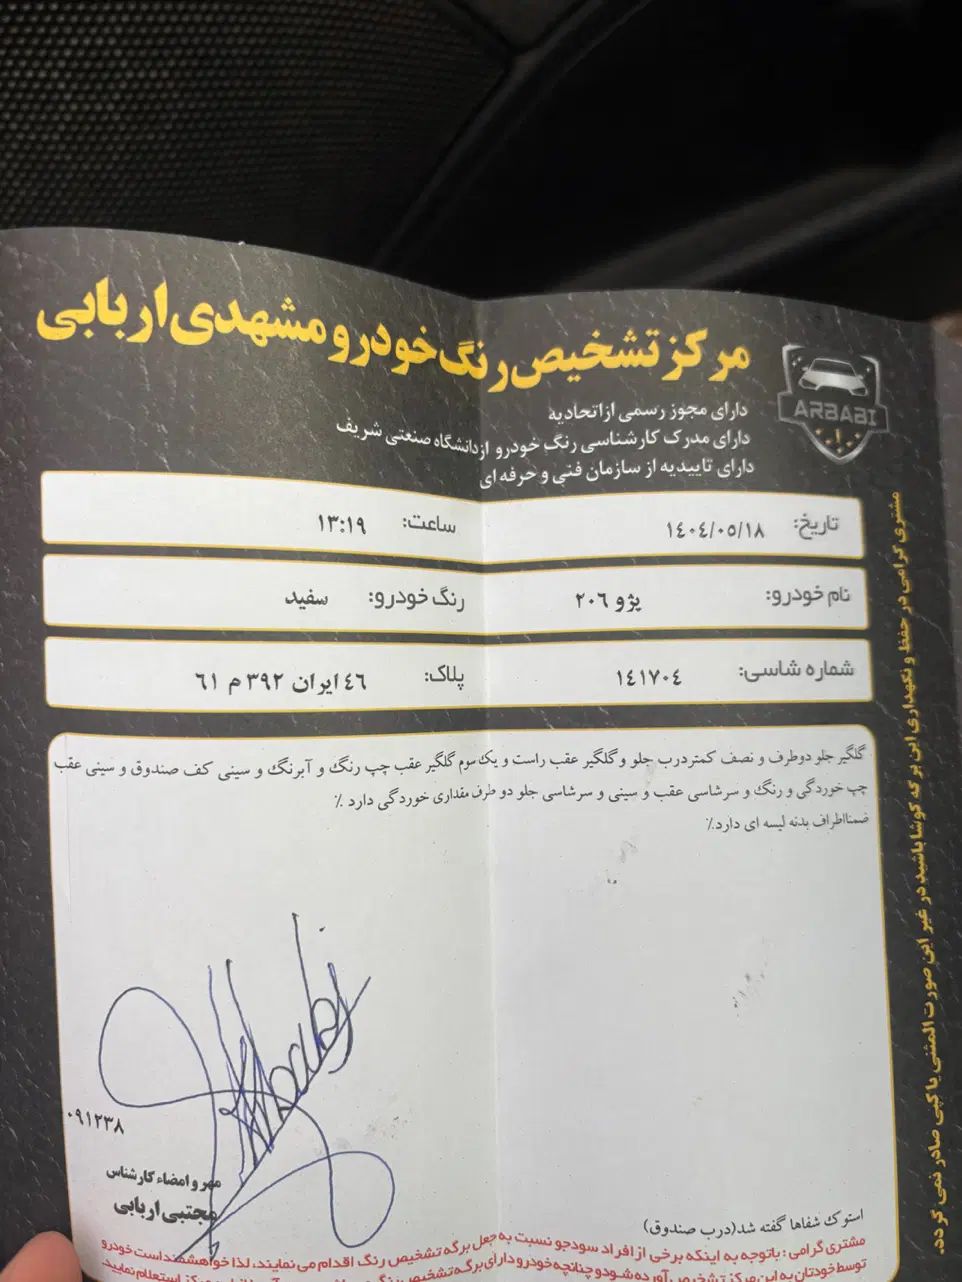 مرکز تشخیص رنگ خودرو مشهدی اربابی
ARBABI
دارای مجوز رسمی از اتحادیه
دارای مدرک کارشناسی رنگ خودرو از دانشگاه صنعتی شریف
دارای تاییدیه از سازمان فنی و حرفه ای
تاریخ: ۱۴۰۴/۰۵/۱۸ ساعت: ۱۳:۱۹
نام خودرو: پژو ۲۰۶ رنگ خودرو: سفید
شماره شاسی: ۱۴۱۷۰۴ پلاک: ۴۶ ایران ۳۹۲ م ۶۱
گلگیر جلو دوطرف و نصف کمتردرب جلو و گلگیر عقب راست و یک سوم گلگیر عقب چپ رنگ و آبرنگ و سینی کف صندوق و سینی عقب
چپ خوردگی و رنگ و سرشاسی عقب و سینی و سرشاسی جلو دو طرف مقداری خوردگی دارد ٪
ضمنااطراف بدنه لیسه ای دارد٪
۰۹۱۲۳۸
مهر و امضاء کارشناس
مجتبی اربابی
استوک شفاها گفته شد(درب صندوق)
مشتری گرامی : باتوجه به اینکه برخی از افراد سودجو نسبت به جعل برگه تشخیص رنگ اقدام می نمایند، لذا خواهشمند است خودرو
توسط خودتان به این مرکز تشخیص آورده شود و چنانچه خودرو دارای برگه تشخیص رنگ مرکز استعلام نمایید.
مشتری گرامی در حفظ و نگهداری این برگه کوشا باشید در غیر این صورت المثنی یا کپی صادر نمی گردد.